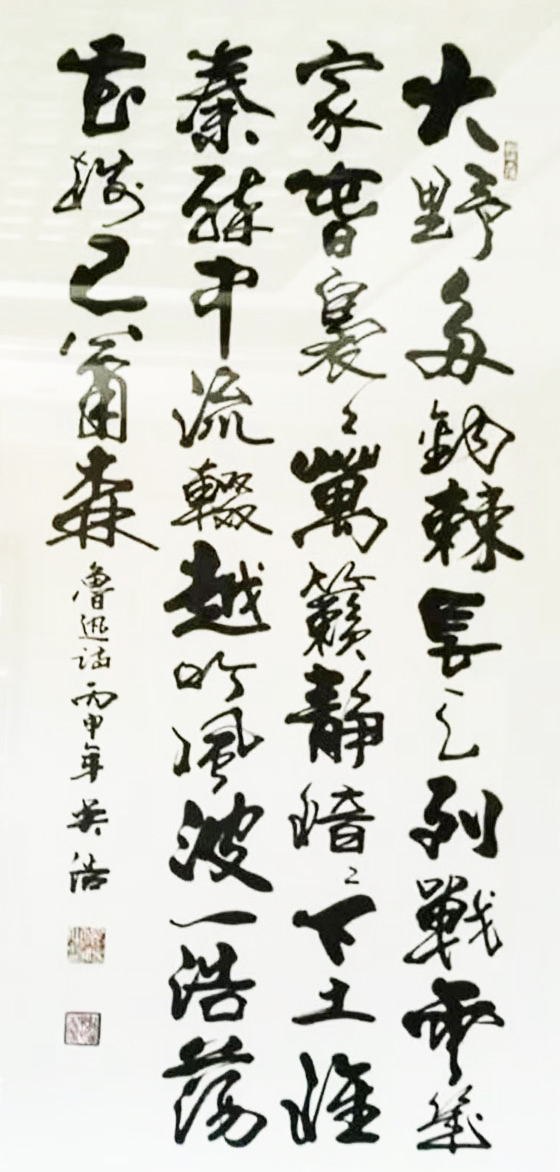 大野多鈎棘長天列戰雲幾
家春裊々萬籟靜愔々下土惟
秦醉中流輟越吟風波一浩蕩
花樹已蕭森 魯迅詩 丙申年 吳浩